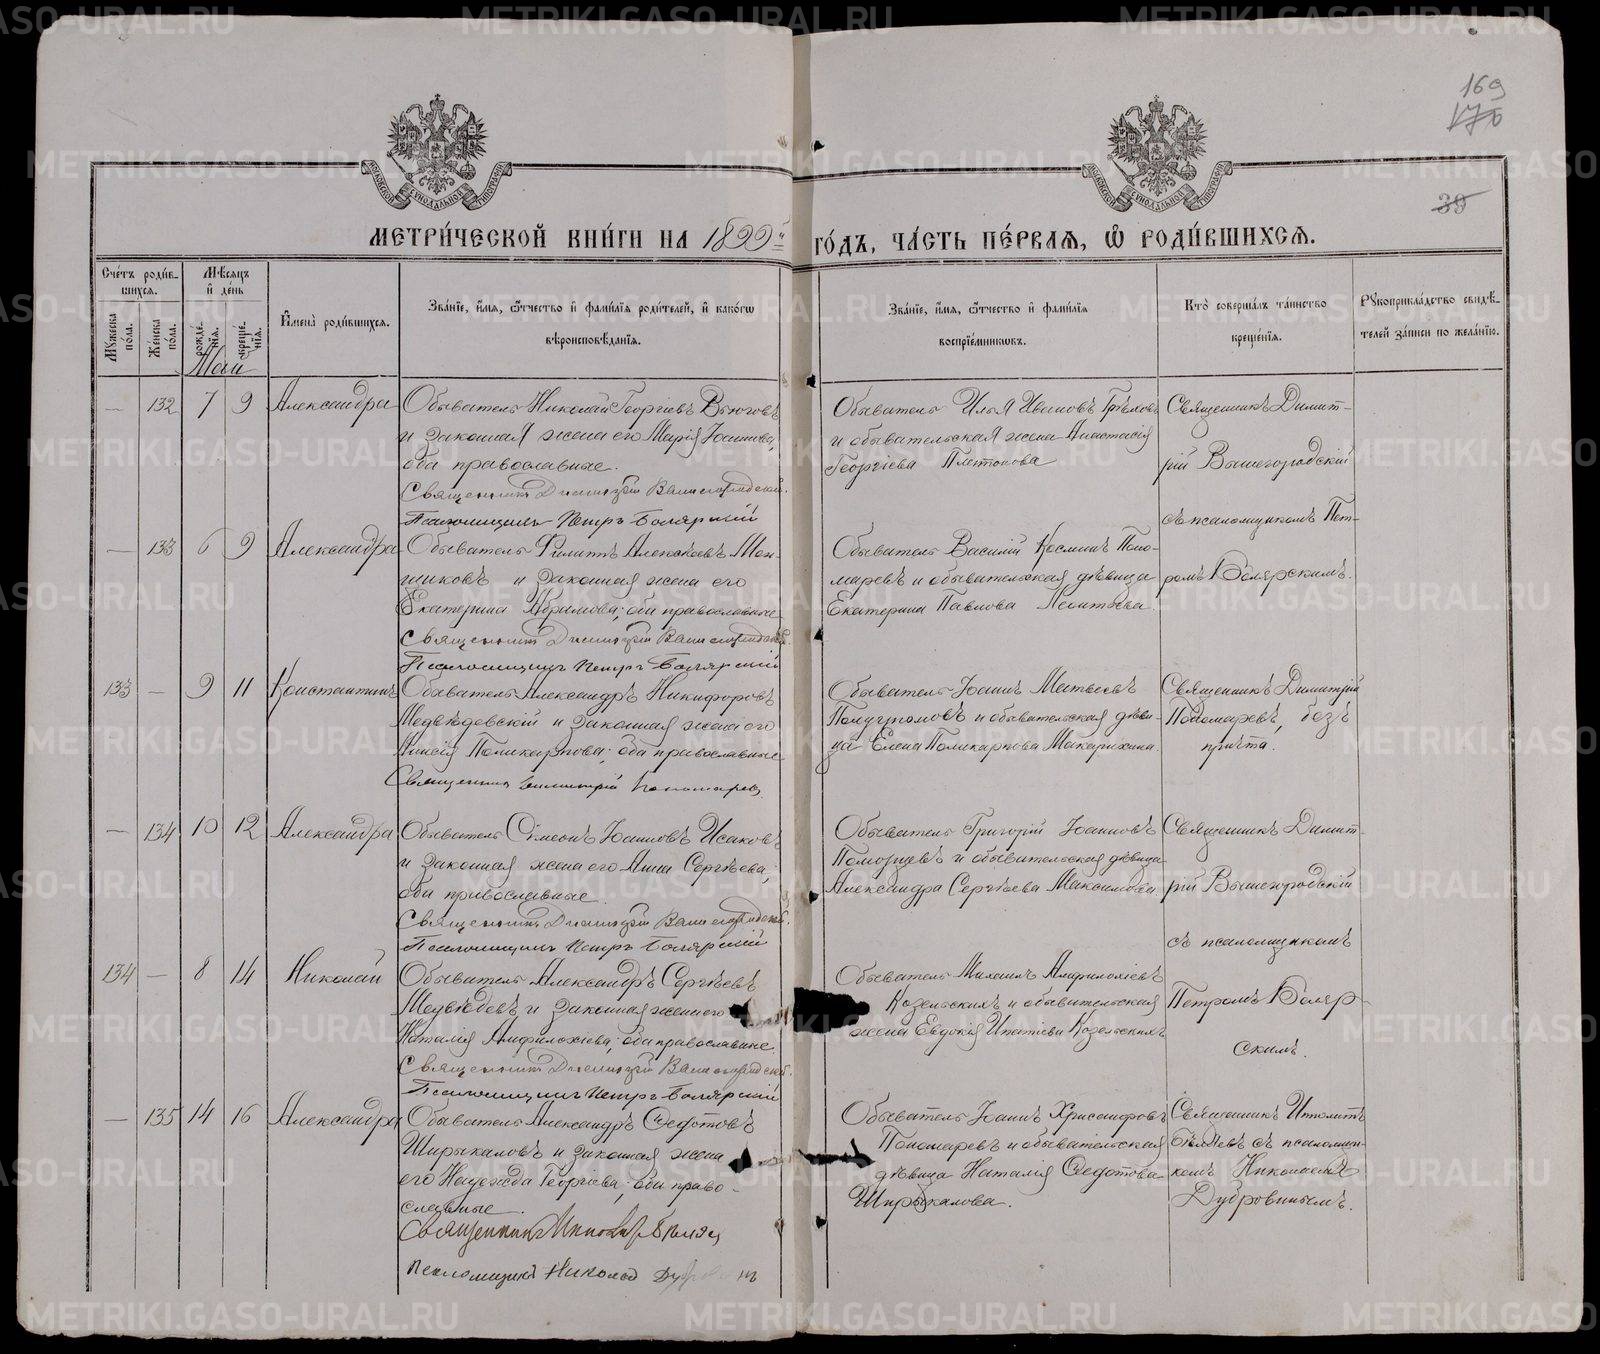 169
176
39
МЕТРИ́ЧЕСКОЙ КНИ́ГИ НА 1899й ГО́ДЪ, ЧА́СТЬ ПЕ́РВАЯ, Ѡ РОДИ́ВШИХСЯ.
Сче́тъ роди́в-
шихся.
Мѣсяцъ
и҆ де́нь
Му́жеска
по́ла.
Же́нска
по́ла.
рожде́-
нїя.
креще́-
нїя.
И҆мена̀ роди́вшихся.
Зва́нїе, и҆́мя, ѻ҆́тчество и҆ фами́лїя роди́телей, и҆ како́гѡ
вѣроисповѣ́данїя.
Зва́нїе, и҆́мя, ѻ҆́тчество и҆ фами́лїя
воспрїе́мниковъ.
Кто̀ соверша́лъ та́инство
креще́нїя.
Рꙋкоприкла́дство свидѣ́-
телей за́писи по жела́нїю.
Май
— 132 7 9 Александра
Обыватель Николай Георгіевъ Вьюговъ
и законная жена его Марія Іоаннова,
оба православные.
Священникъ Димитрій Вышегородскій.
Псаломщикъ Петръ Боярскій
Обыватель Илья Ивановъ
и обывательская жена Анастасія
Георгіева
Священникъ Димит-
рій Вышегородскій
съ псаломщикомъ Пет-
ромъ Боярскимъ.
— 133 6 9 Александра
Обыватель Филиппъ Алексѣевъ Мен-
щиковъ и законная жена его
Екатерина Абрамова; оба православные
Священникъ Димитрій Вышегородскій.
Псаломщикъ Петръ Боярскій
Обыватель Василій Косминъ Поно-
маревъ и обывательская дѣвица
Екатерина Павлова Леонтьева.
133 — 9 11 Константинъ
Обыватель Александръ Никифоровъ
Медвѣдевскій и законная жена его
Анисія Поликарпова; оба православные
Священникъ Димитрій Пономаревъ.
Обыватель Іоаннъ Матвеевъ
и обывательская дѣви-
ца Елена Поликарпова Макарихина.
Священникъ Димитрій
Пономаревъ, безъ
причта.
— 134 10 12 Александра
Обыватель Сімеонъ Іоанновъ Исаковъ
и законная жена его Анна Сергѣева;
оба православные.
Священникъ Димитрій Вышегородскій.
Псаломщикъ Петръ Боярскій
Обыватель Григорій Іоанновъ
Поморцевъ и обывательская дѣвица
Александра Сергѣева Максимова.
Священникъ Димит-
рій Вышегородскій
съ псаломщикомъ
Петромъ Бояр-
скимъ.
134 — 8 14 Николай
Обыватель Александръ Сергѣевъ
Медвѣдевъ и законная жена его
Наталія Амфилохіева; оба православные
Священникъ Димитрій Вышегородскій.
Псаломщикъ Петръ Боярскій
Обыватель Михаилъ Амфилохіевъ
Козельскихъ и обывательская
жена Евдокія Ипатіева Козельскихъ
— 135 14 16 Александра
Обыватель Александръ Ѳедотовъ
Ширыкаловъ и законная жена
его Надежда Георгіева; оба право-
славные.
Священникъ Ипполитъ Бѣляевъ
Псаломщикъ Николай Дубровинъ
Обыватель Іоаннъ Хрисанфовъ
Пономаревъ и обывательская
дѣвица Наталія Ѳедотова
Ширыкалова.
Священникъ Ипполитъ
Бѣляевъ съ псаломщи-
комъ Николаемъ
Дубровинымъ.
METRIKI.GASO-URAL.RU